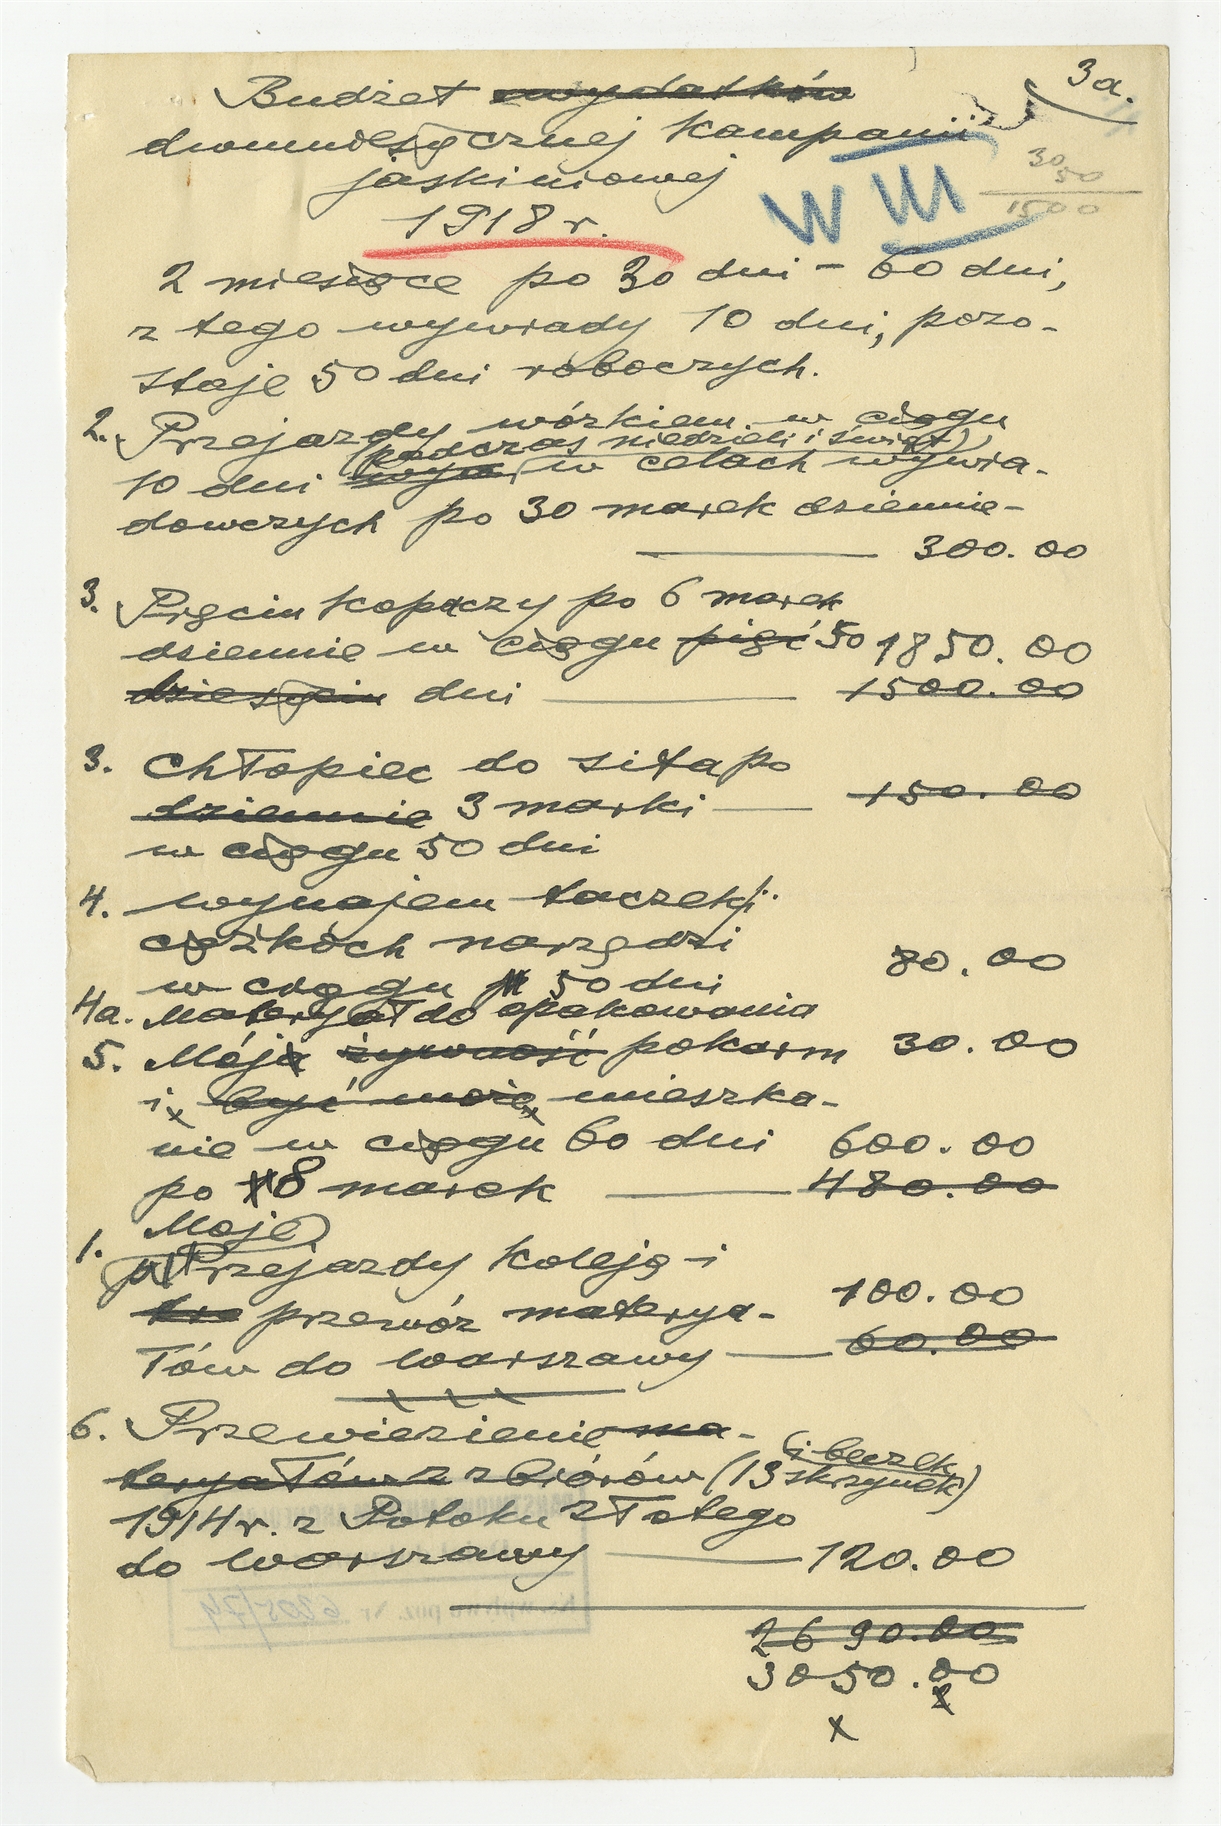 3a.
Budżet wydatków
dwumiesięcznej kampanii
jaskiniowej
30
50
1500
W III
1918 r.
2 miesiące po 30 dni - 60 dni,
z tego wywiady 10 dni, pozo-
staje 50 dni roboczych.
2. Przejazdy wózkiem w ciągu
(podczas niedzieli i świąt)
10 dni w celach wywia-
dowczych po 30 marek dziennie-
300.00
3. Pięciu kopaczy po 6 marek
dziennie w ciągu pięć 50 1850.00
dziesięciu dni 1500.00
3. Chłopiec do sita po
dziennie 3 marki 150.00
w ciągu 50 dni
4. wynajem taczek i
ciężkich narzędzi
w ciągu 50 dni 80.00
4a. Materjał do opakowania
5. Mój żywność pokarm 30.00
i być może mieszka-
nie w ciągu 60 dni 600.00
po 8 marek 480.00
Moje
1. Przejazdy koleją i
przewóz materya- 100.00
łów do Warszawy 60.00
6. Przewiezienie ma-
i beczek
teryałów z zbiorów (13 skrzynek)
1914 r. z Potoku Złotego
do Warszawy 120.00
6205/74
2690.00
3050.00
x